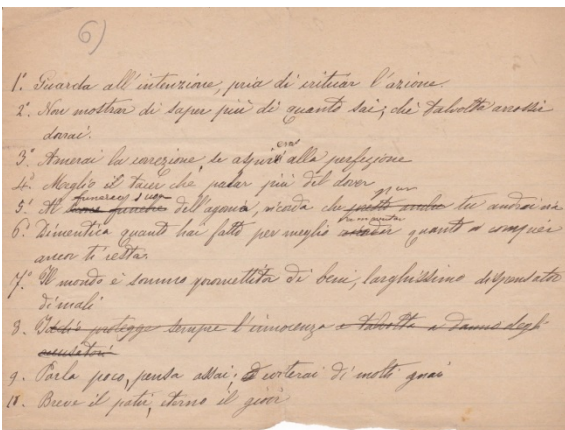 6)
1º. Guarda all'intenzione, pria di criticar l'azione.
2º. Non mostrar di saper più di quanto sai; chè talvolta arrossir
dovrai.
3º. Amerai la correzione, se aspiri alla perfezione
4º. Meglio il tacer che parlar più del dover
5º. Al funereo suon dell'agonia, ricorda che tu andrai via
6º. Dimentica quanto hai fatto per meglio quanto a compier
ancor ti resta.
7º. Il mondo è sommo promettitor di beni, larghissimo dispensator
di mali
8. Iddio protegge sempre l'innocenza e talvolta a danno degli
accusatori
9. Parla poco, pensa assai; Eviterai di molti guai
10. Breve il patir, eterno il gioir